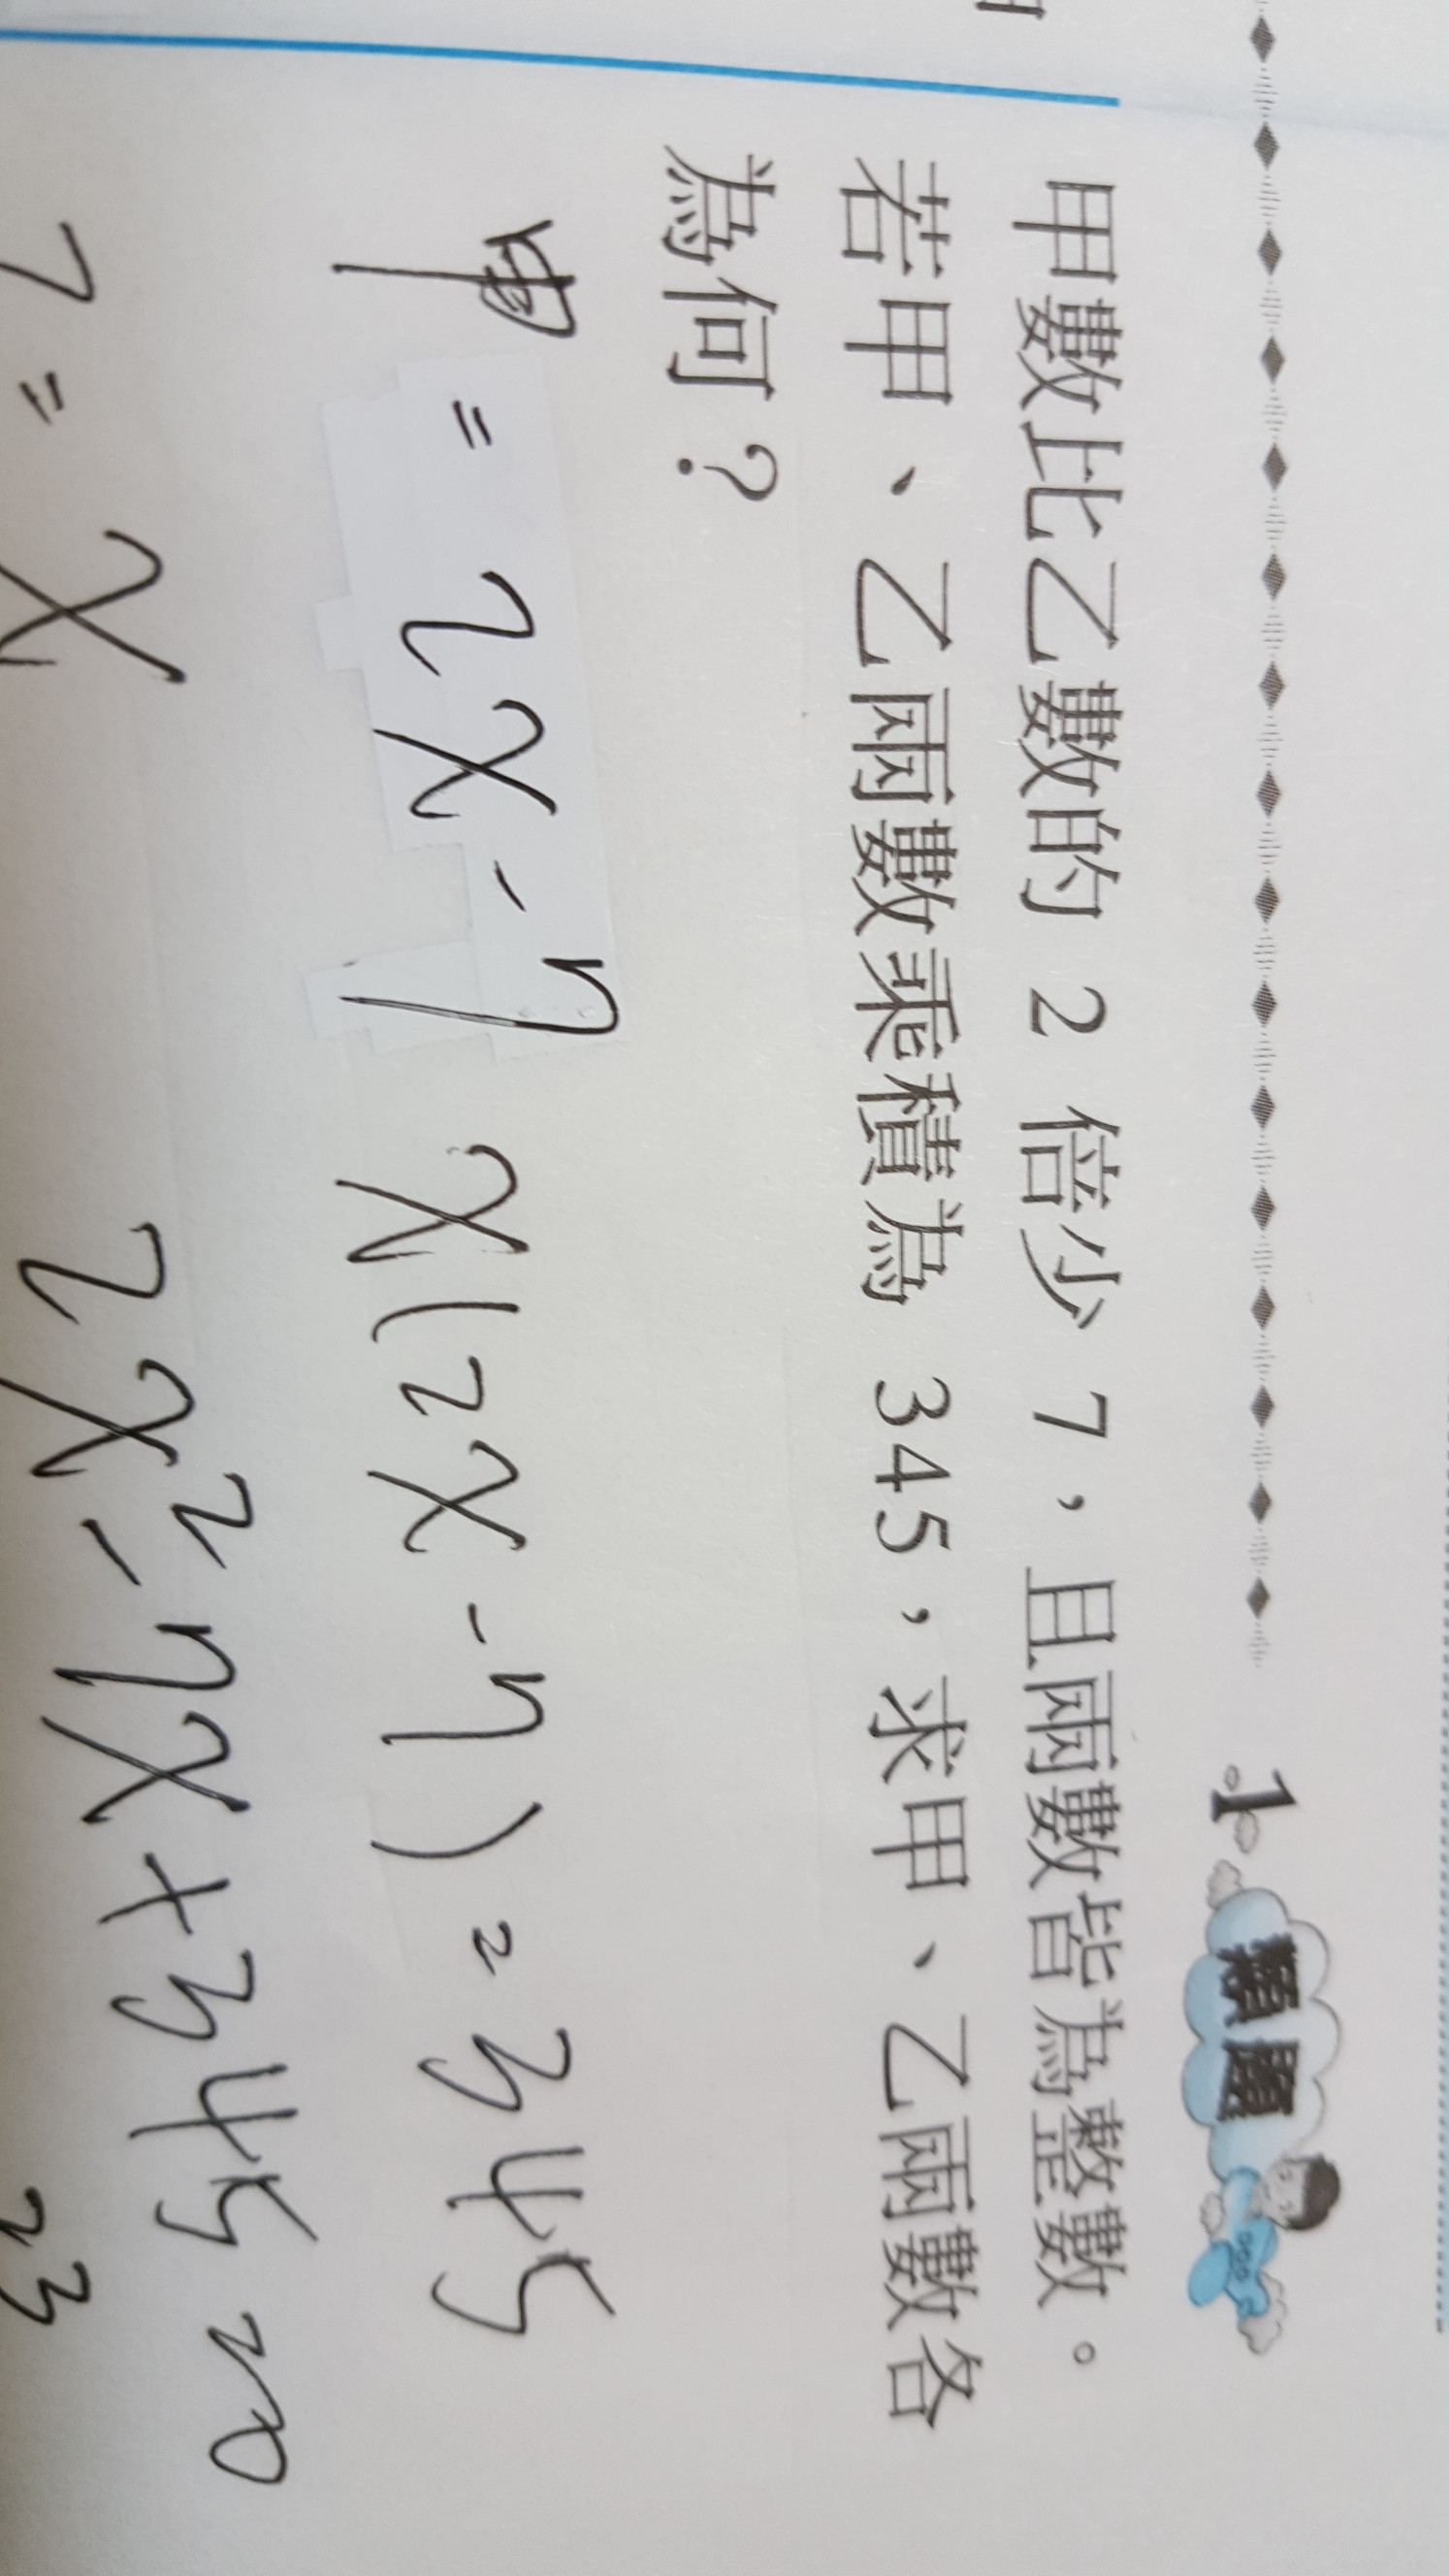 1 類題
甲數比乙數的 2 倍少 7，且兩數皆為整數。
若甲、乙兩數乘積為 345，求甲、乙兩數各
為何？
甲 = 2x - 7 x(2x - 7) = 345
乙 = x 2x² - 7x + 345 = 0
23